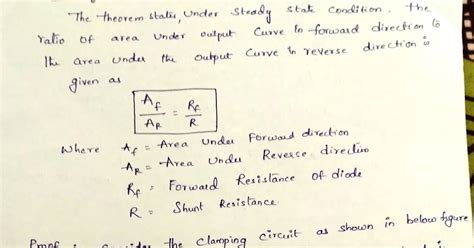 The theorem states, Under Steady State Condition, the
ratio of area under output Curve in forward direction to
the area under the output Curve in reverse direction is
given as
A_f / A_R = R_f / R
Where A_f = Area Under Forward direction
A_R = Area Under Reverse direction
R_f = Forward Resistance of diode
R = Shunt Resistance
Proof : Consider the clamping circuit as shown in below figure